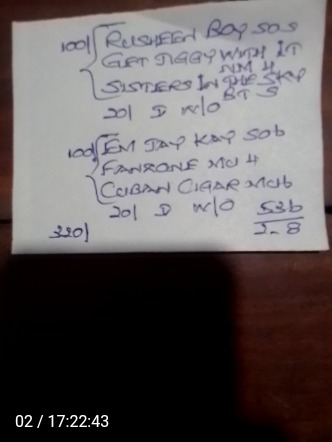 100/ RUSHEEN BOY SOS
GET JIGGY WITH IT
NM 4
SISTERS IN THE SKY
BT S
20/ D W/O
100/ EM JAY KAY SOB
FANZONE MU 4
CUBAN CIGAR MUB
20/ D W/O 53B
320/ 2-8
02 / 17:22:43